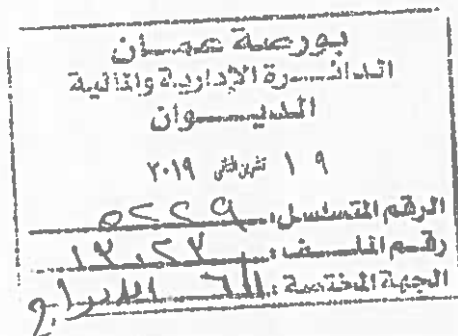 بورصة عمان
الدائرة الإدارية والمالية
الديوان
١٩ تشرين الثاني ٢٠١٩
الرقم المتسلسل: ٥٢٢٩
رقم الملف:
الجهة المختصة: